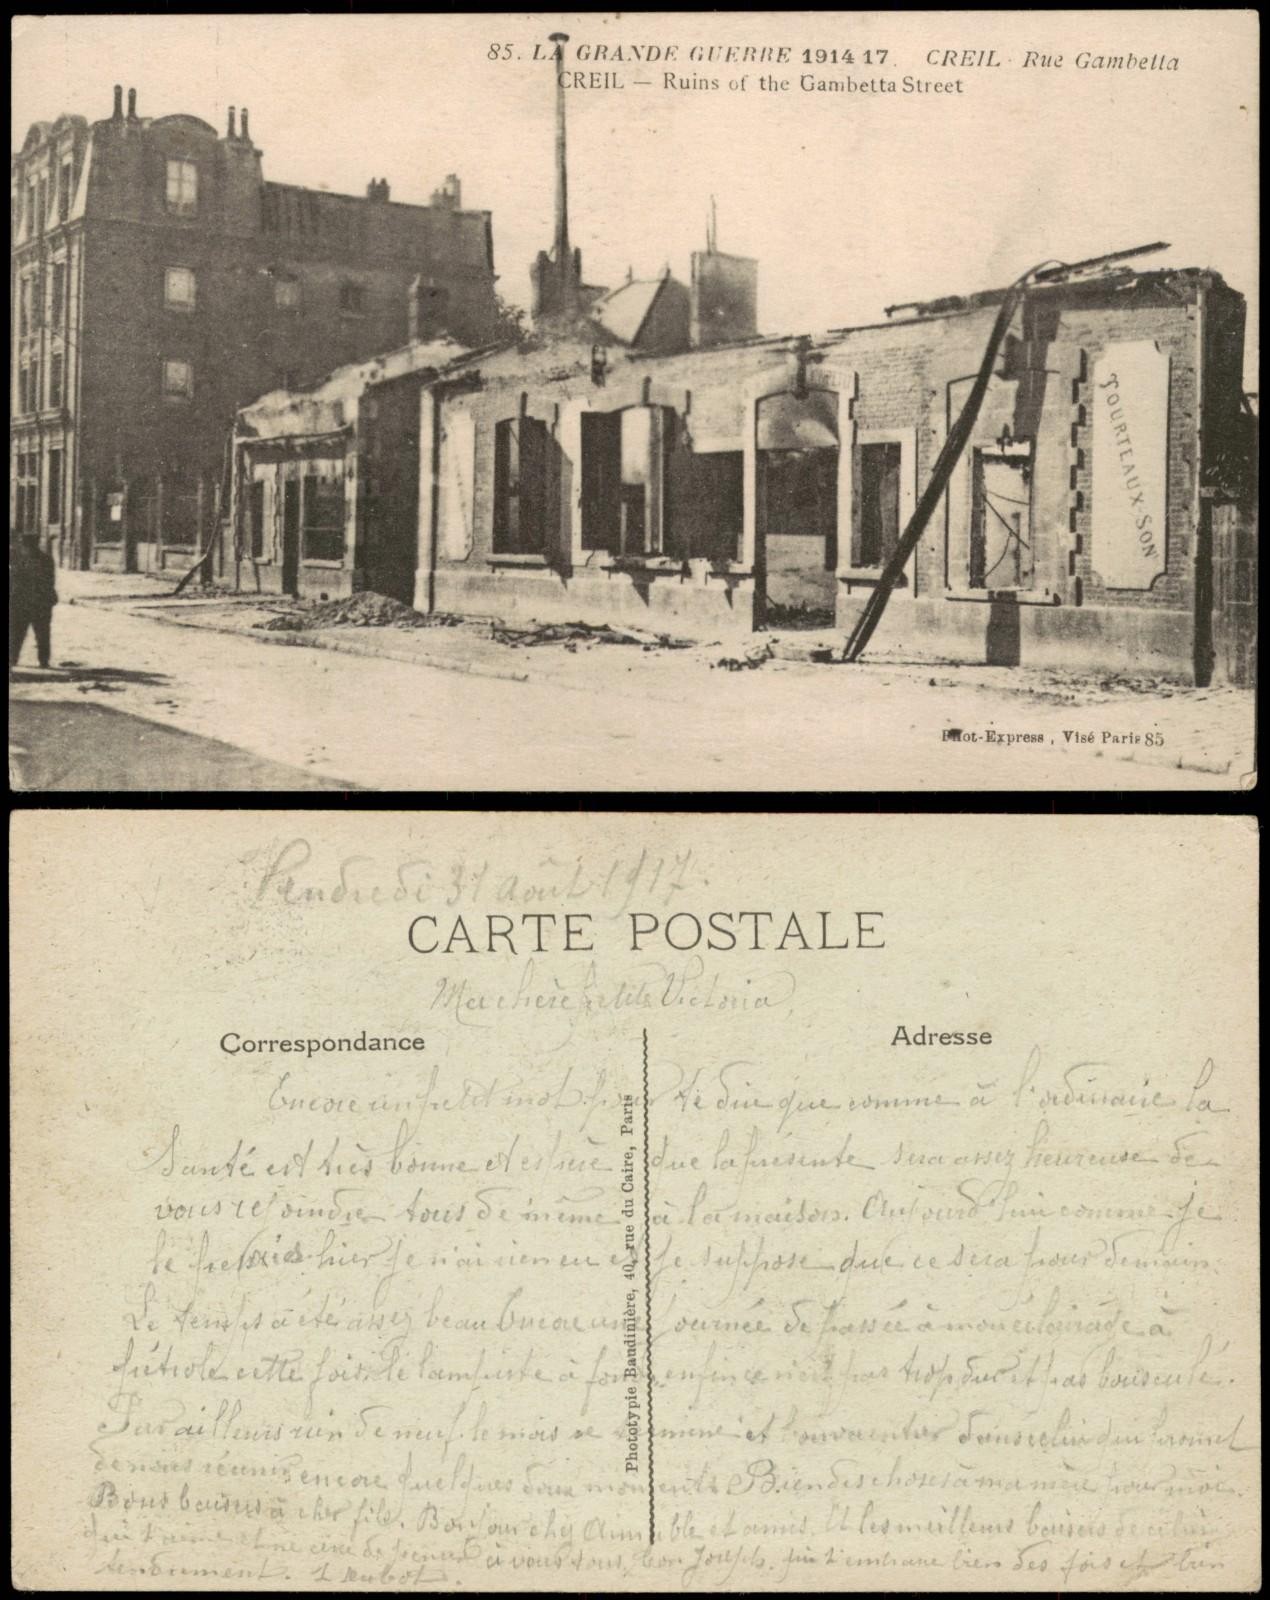 85. LA GRANDE GUERRE 1914 17. CREIL - Rue Gambetta
CREIL — Ruins of the Gambetta Street
TOURTEAUX-SON
Phot-Express, Visé Paris 85
Vendredi 31 août 1917.
CARTE POSTALE
Ma chère petite Victoria,
Correspondance
Adresse
Encore un petit mot pour te dire que comme à l'ordinaire la
Santé est très bonne et espère que la présente sera assez heureuse de
vous rejoindre tous de même à la maison. Aujourd'hui comme je
le hier je n'ai rien eu et je suppose que ce sera pour demain.
Le temps a été assez beau Encore une journée de passée à mon éclairage à
pétrole cette fois. à enfin ce n'est pas trop dur et pas bousculé.
Par ailleurs rien de neuf. le mois se termine et dans celui qui promet
de nous réunir encore quelques doux moments Bien des choses à ma mère pour moi.
Bons baisers à cher fils. Bonjour chez Aimable et amis. Et les meilleurs baisers de celui
qui t'aime et ne cesse de penser à vous tous, ton Joseph. qui t'embrasse bien des fois et bien
tendrement.
Phototypie Baudinière, 40, rue du Caire, Paris